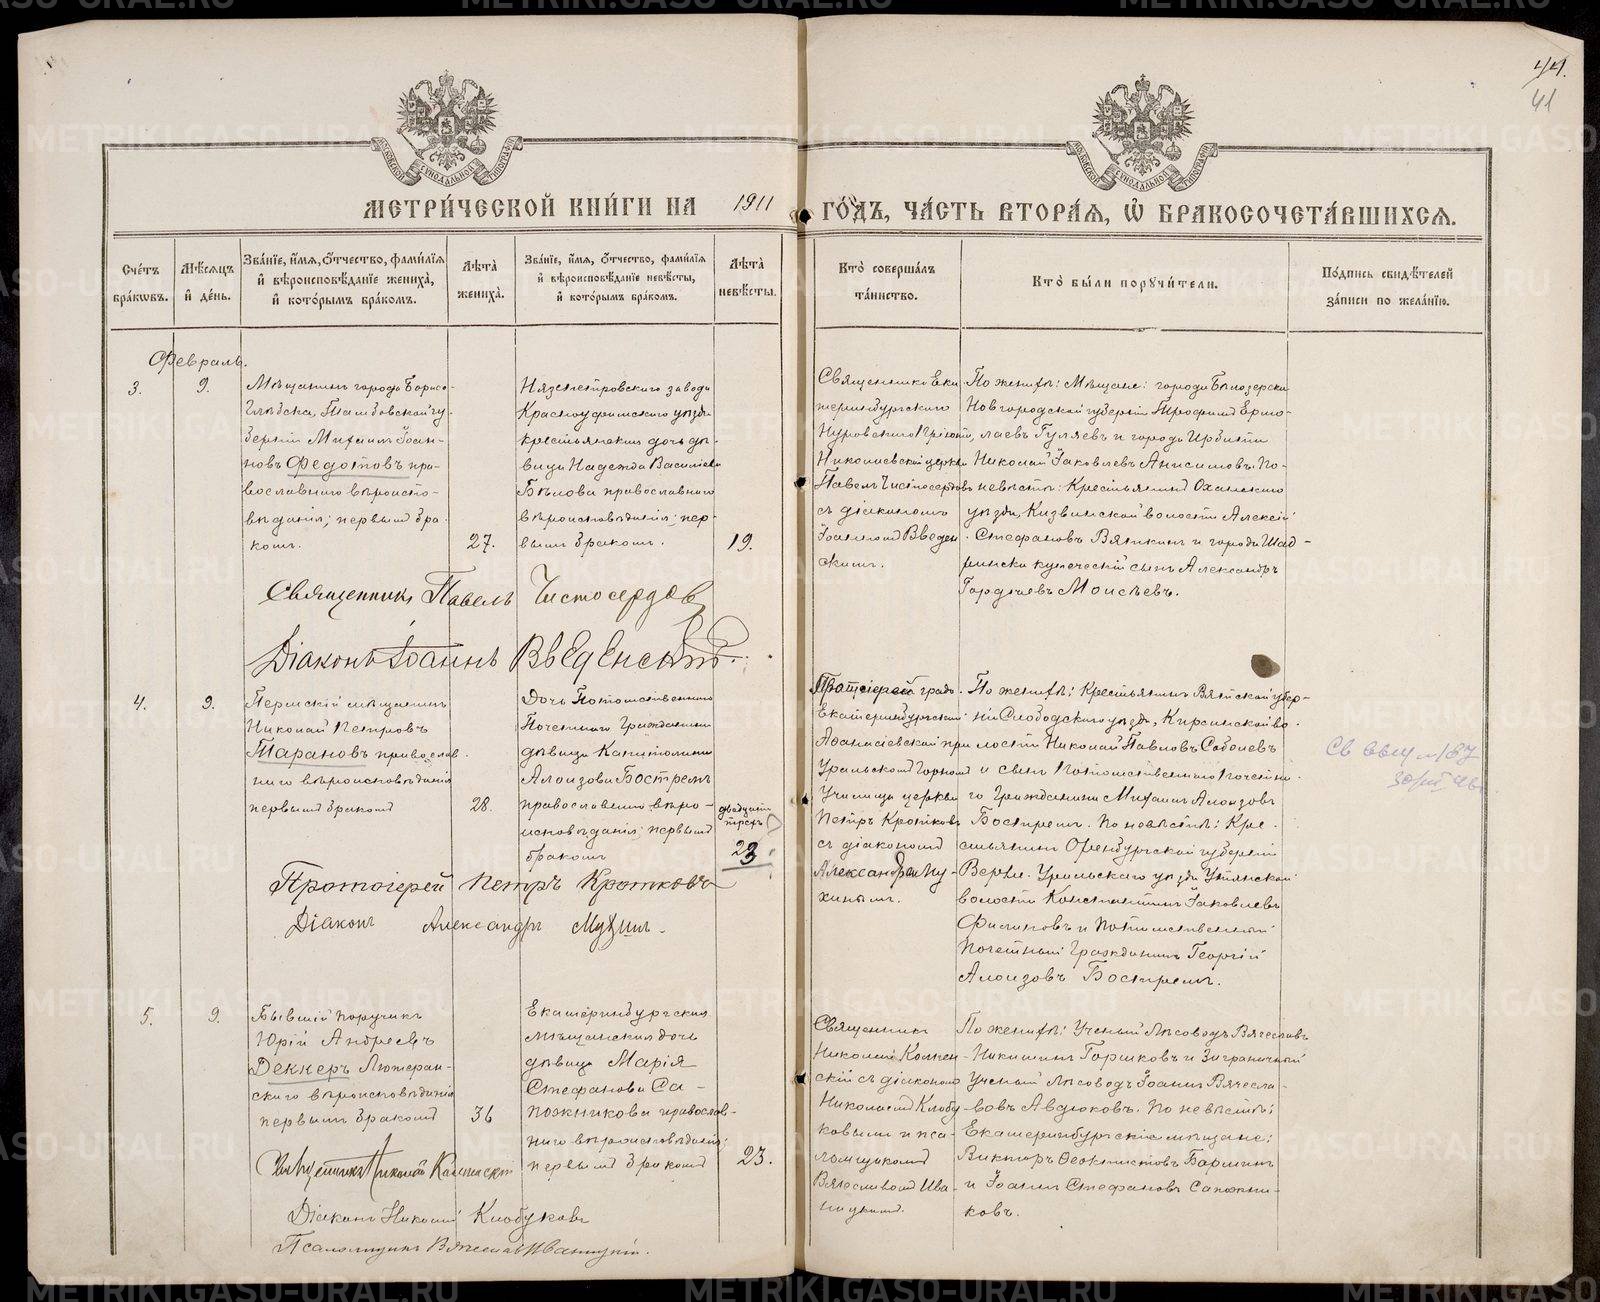 44.
41
МЕТРИ́ЧЕСКОЙ КНИ́ГИ НА 1911 ГО́ДЪ, ЧА́СТЬ ВТОРА́Я, Ѡ҆ БРАКОСОЧЕТА́ВШИХСЯ.
Сче́тъ бра́кѡвъ.
Мѣ́сяцъ и҆ де́нь.
Зва́нїе, и҆́мя, ѻ҆́тчество, фами́лїя и҆ вѣроисповѣ́данїе жениха̀, и҆ кото́рымъ бра́комъ.
Лѣ́та жениха̀.
Зва́нїе, и҆́мя, ѻ҆́тчество, фами́лїя и҆ вѣроисповѣ́данїе невѣ́сты, и҆ кото́рымъ бра́комъ.
Лѣ́та невѣ́сты.
Кто̀ соверша́лъ та́инство.
Кто̀ бы́ли порꙋчи́тели.
По́дпись свидѣ́телей за́писи по жела́нїю.
Февраль.
3.
9.
Мѣщанинъ города Борисо-
глѣбска, Тамбовской гу-
берніи Михаилъ Іоан-
новъ Федотовъ пра-
вославнаго вѣроиспо-
вѣданія; первымъ бра-
комъ.
27.
Нязепетровскаго завода
Красноуфимскаго уѣзда
крестьянская дочь дѣ-
вица Надежда Васильева
Бѣлова православнаго
вѣроисповѣданія; пер-
вымъ бракомъ.
19.
Священникъ Ека-
теринбургского
Нуровскаго Пріюта,
Николаевской церкви
Павелъ Чистосердовъ
съ діакономъ
Іоанномъ Введен-
скимъ.
По женихѣ: Мѣщане: города Бѣлозерска
Новгородской губерніи Трофимъ Ермо-
лаевъ Гуляевъ и города Ирбити
Николай Іаковлевъ Анисимовъ. По
невѣстѣ: Крестьянинъ Оханскаго
уѣзда, Кизвинской волости Алексій
Стефановъ Вяткинъ и города Шад-
ринска купеческій сынъ Александръ
Гордѣевъ Моисѣевъ.
Священникъ Павелъ Чистосердовъ
Діаконъ Іоаннъ Введенскій.
4.
9.
Пермскій мѣщанинъ
Николай Петровъ
Тарановъ православ-
наго вѣроисповѣданія
первымъ бракомъ
28.
Дочь Потомственнаго
Почетнаго Гражданина
дѣвица Капитолина
Алоизова Бостремъ
православнаго вѣро-
исповѣданія; первымъ
бракомъ
двадцати
трехъ
23
Протоіерей града
Екатеринбургской
Афанасіевской при
Уральскомъ Горномъ
Училищѣ церкви
Петръ Кротковъ
съ діакономъ
Александромъ Му-
хинымъ.
По женихѣ: Крестьянинъ Вятской губер-
ніи Слободскаго уѣзда, Кирсинской во-
лости Николай Павловъ Соболевъ
и сынъ Потомственнаго Почетна-
го Гражданина Михаилъ Алоизовъ
Бостремъ. По невѣстѣ: Кре-
стьянинъ Оренбургской губерніи
Верхне-Уральскаго уѣзда
волости Константинъ Іаковлевъ
и Потомственный
Почетный Гражданинъ Георгій
Алоизовъ Бостремъ.
Протоіерей Петръ Кротковъ
Діаконъ Александръ Мухинъ.
5.
9.
Бывшій поручикъ
Юрій Андреевъ
Декнеръ Лютеран-
скаго вѣроисповѣданія
первымъ бракомъ
36
Екатеринбургская
мѣщанская дочь
дѣвица Марія
Стефанова Са-
пожникова православ-
наго вѣроисповѣданія;
первымъ бракомъ
23.
Священникъ
Николай
съ діакономъ
Николаемъ Клобу-
ковымъ и пса-
ломщикомъ
Вячеславомъ Ива-
ницкимъ.
По женихѣ: Ученый Лѣсоводъ Вячеславъ
Никитинъ Горшковъ и Заграничный
Ученый Лѣсоводъ Іоаннъ Вячесла-
вовъ Авдюковъ. По невѣстѣ:
Екатеринбургскіе мѣщане:
Викторъ Феоктистовъ Барминъ
и Іоаннъ Стефановъ Сапожни-
ковъ.
Священникъ Николай
Діаконъ Николай Клобуковъ
Псаломщикъ Вячеславъ Иваницкій.
METRIKI.GASO-URAL.RU